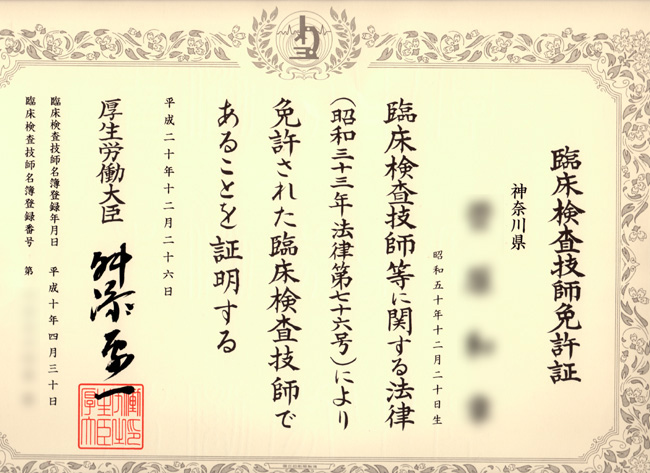 臨床検査技師免許証
神奈川県
昭和五十年十二月二十日生
臨床検査技師等に関する法律
(昭和三十三年法律第七十六号)により
免許された臨床検査技師で
あることを証明する
平成二十年十二月二十六日
厚生労働大臣 舛添要一
臨床検査技師名簿登録年月日 平成十年四月三十日
臨床検査技師名簿登録番号 第